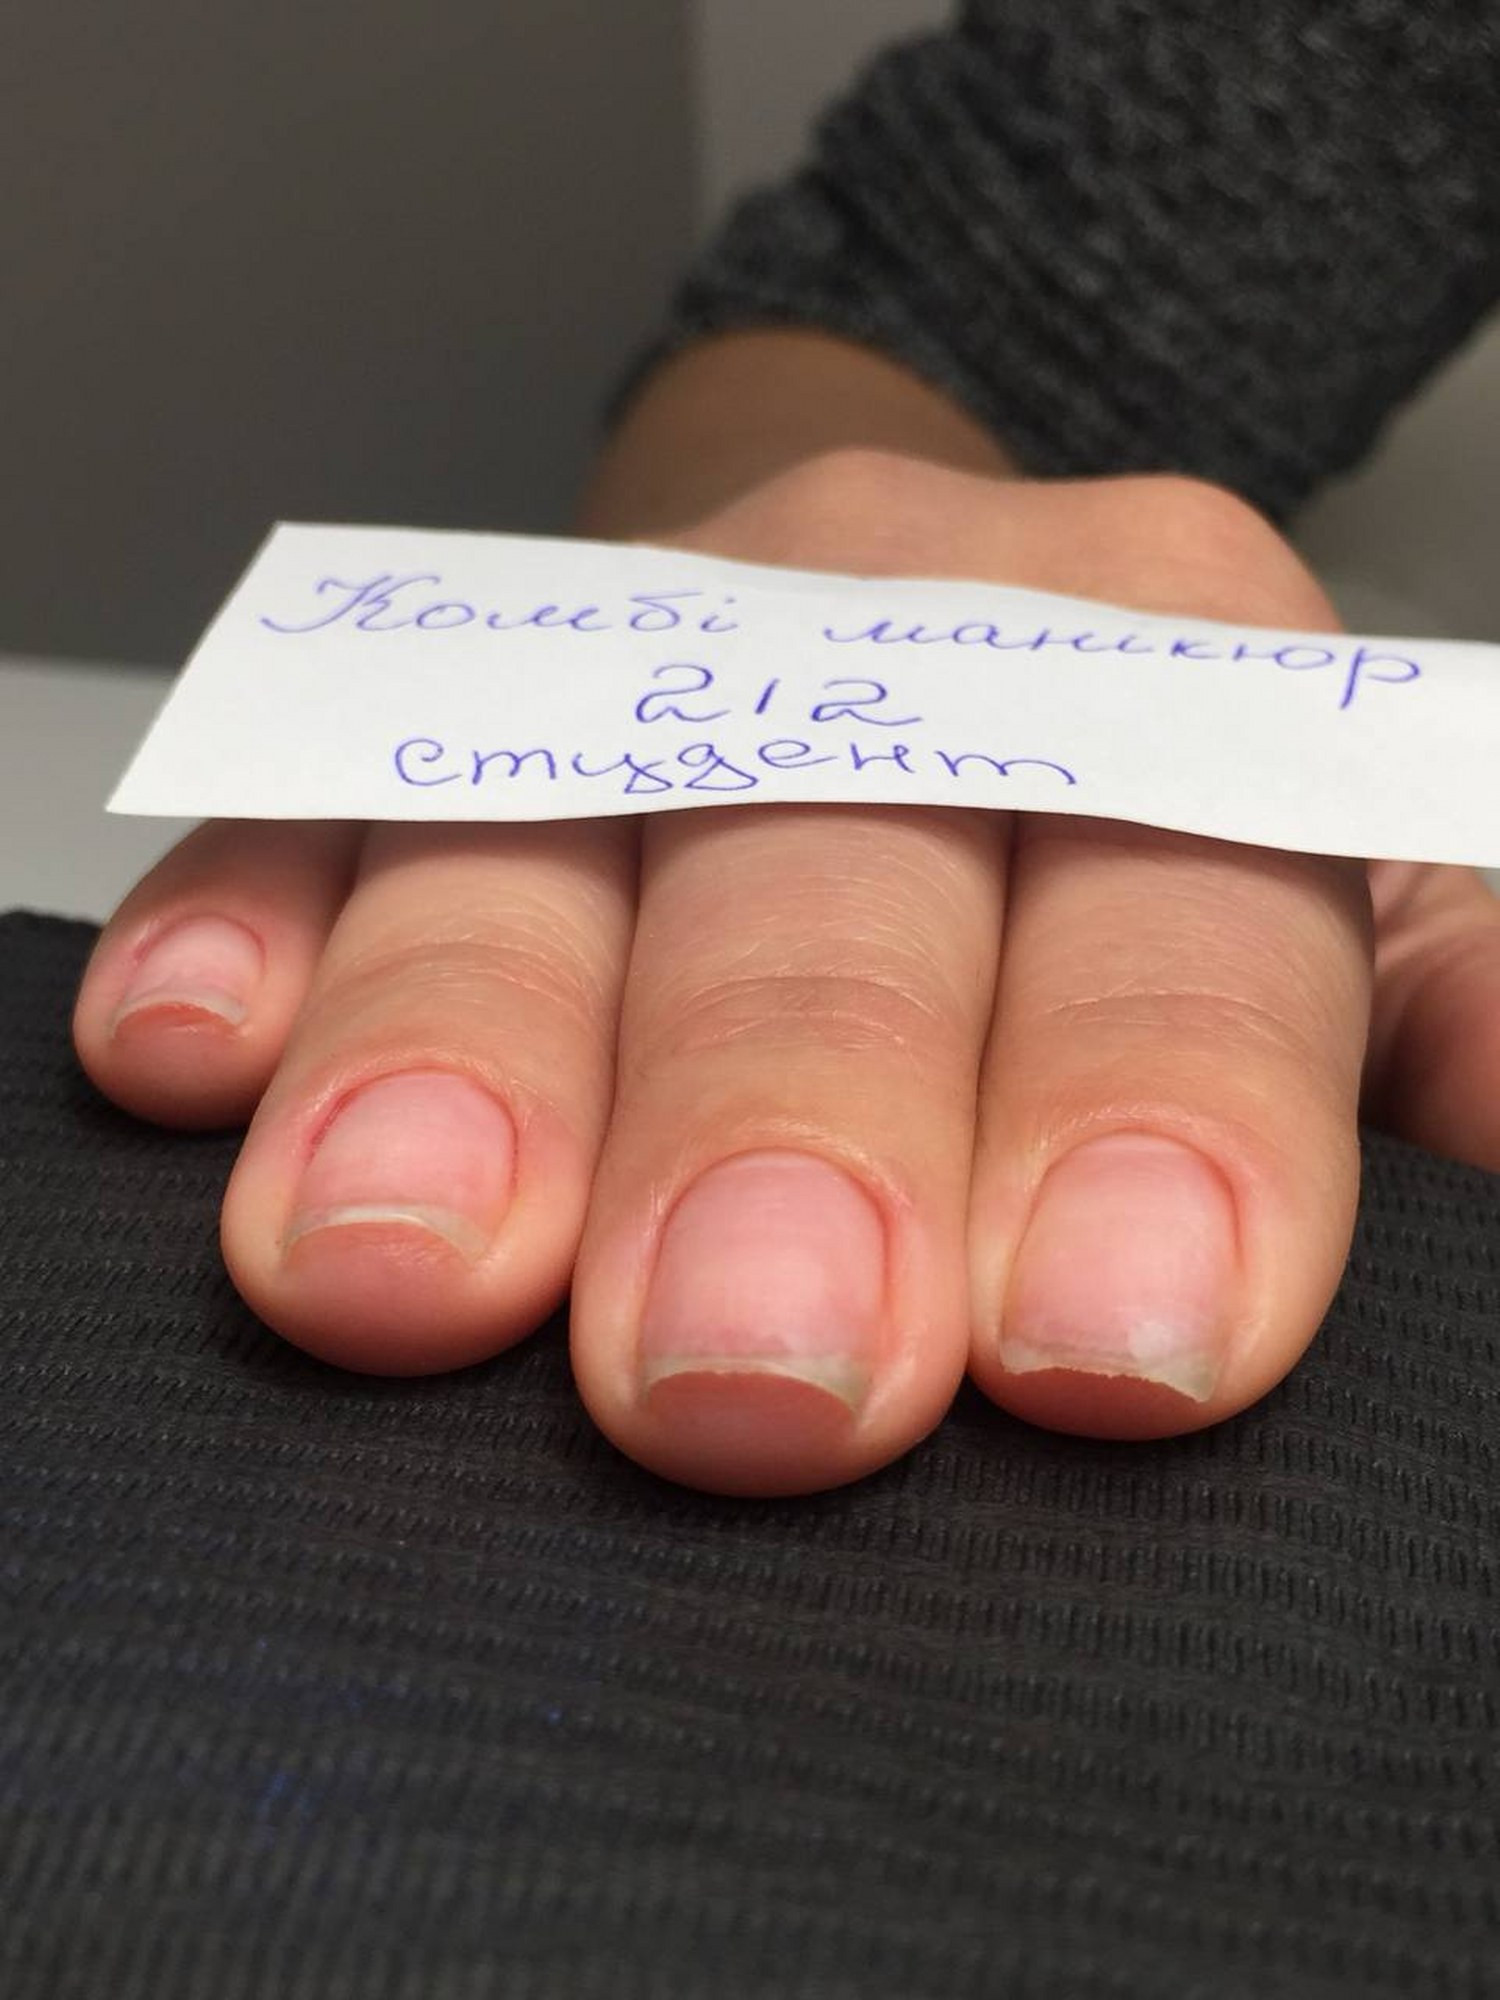 Комбі манікюр
212
студент